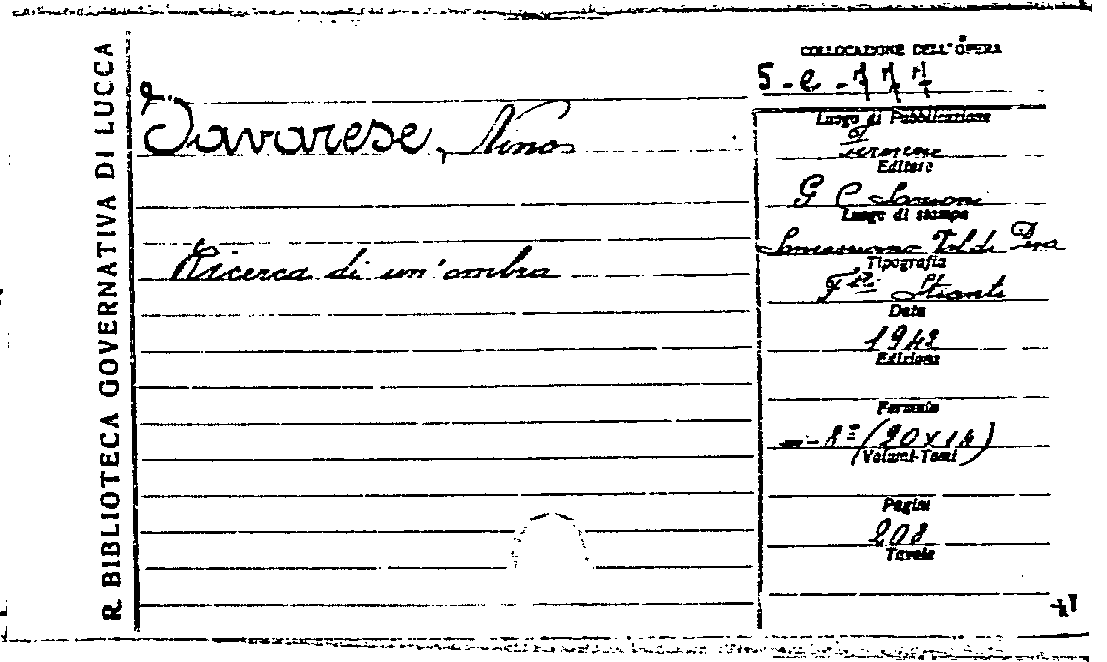 R. BIBLIOTECA GOVERNATIVA DI LUCCA
Savarese, Nino
Ricerca di un'ombra
COLLOCAZIONE DELL'OPERA
5-e-777
Luogo di Pubblicazione
Firenze
Editore
G C Sansoni
Luogo di stampa
Sancasciano Val di Pesa
Tipografia
F.lli Stianti
Data
1942
Edizione
Formato
8º (20x14)
(Volumi-Tomi)
Pagine
208
Tavole